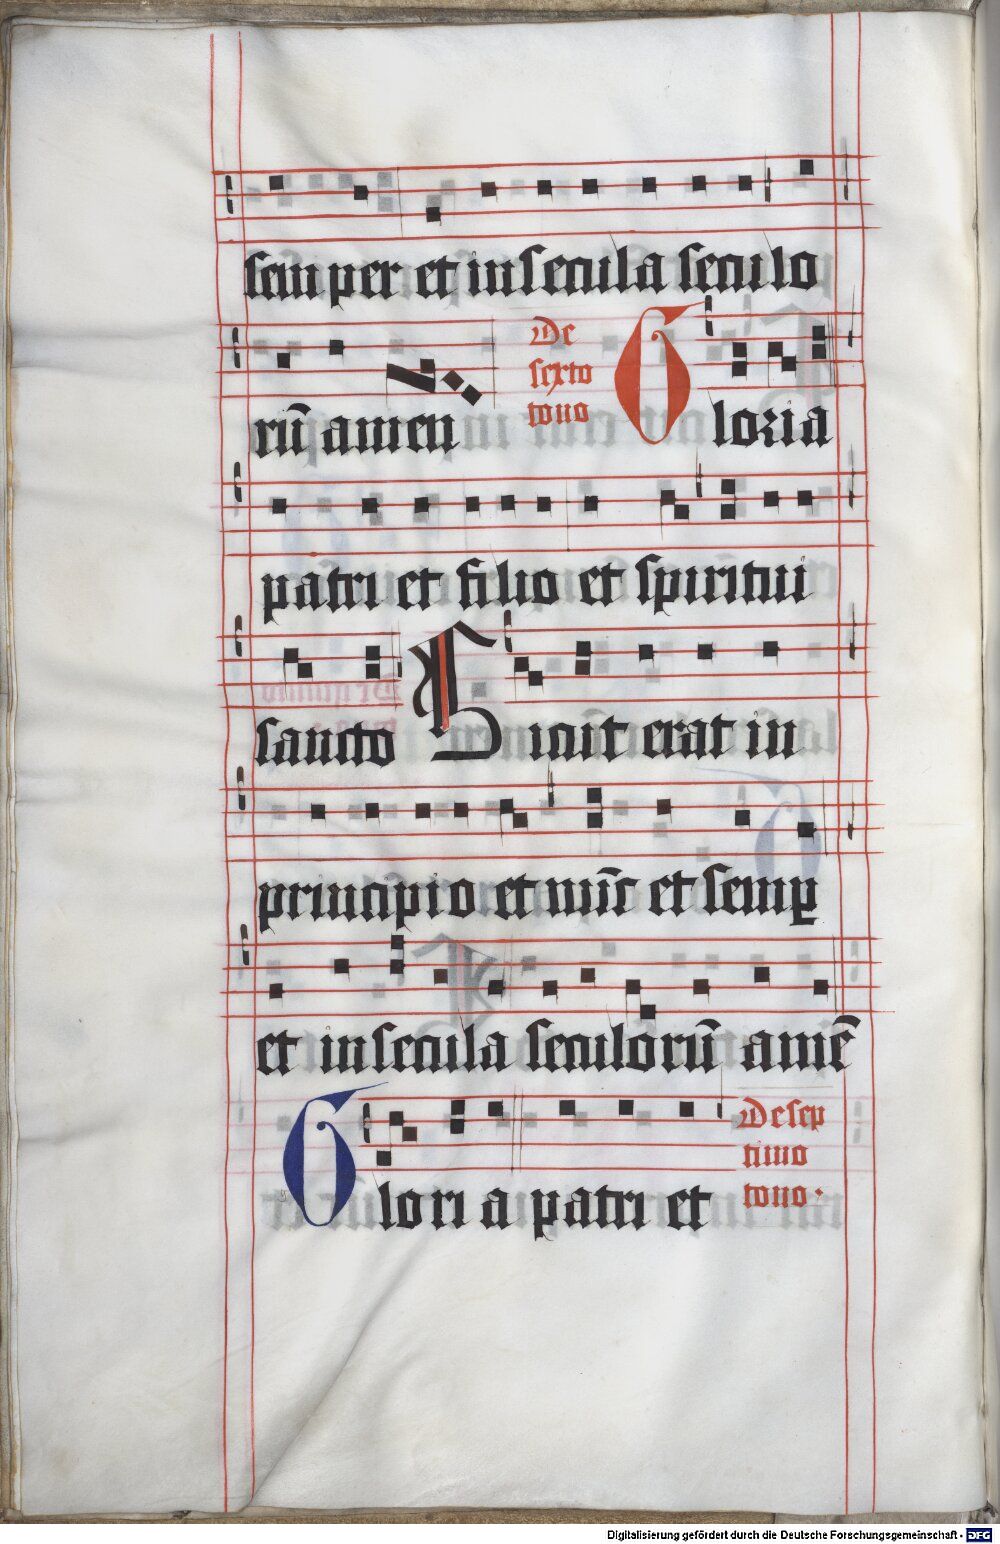 sem per et in secula seculo
rū amen
De
sexto
tono
Gloria
patri et filio et spiritui
sancto Sicut erat in
principio et nūc et semꝑ
et in secula seculorū amē
Glori a patri et
De sep
timo
tono ·
Digitalisierung gefördert durch die Deutsche Forschungsgemeinschaft - DFG